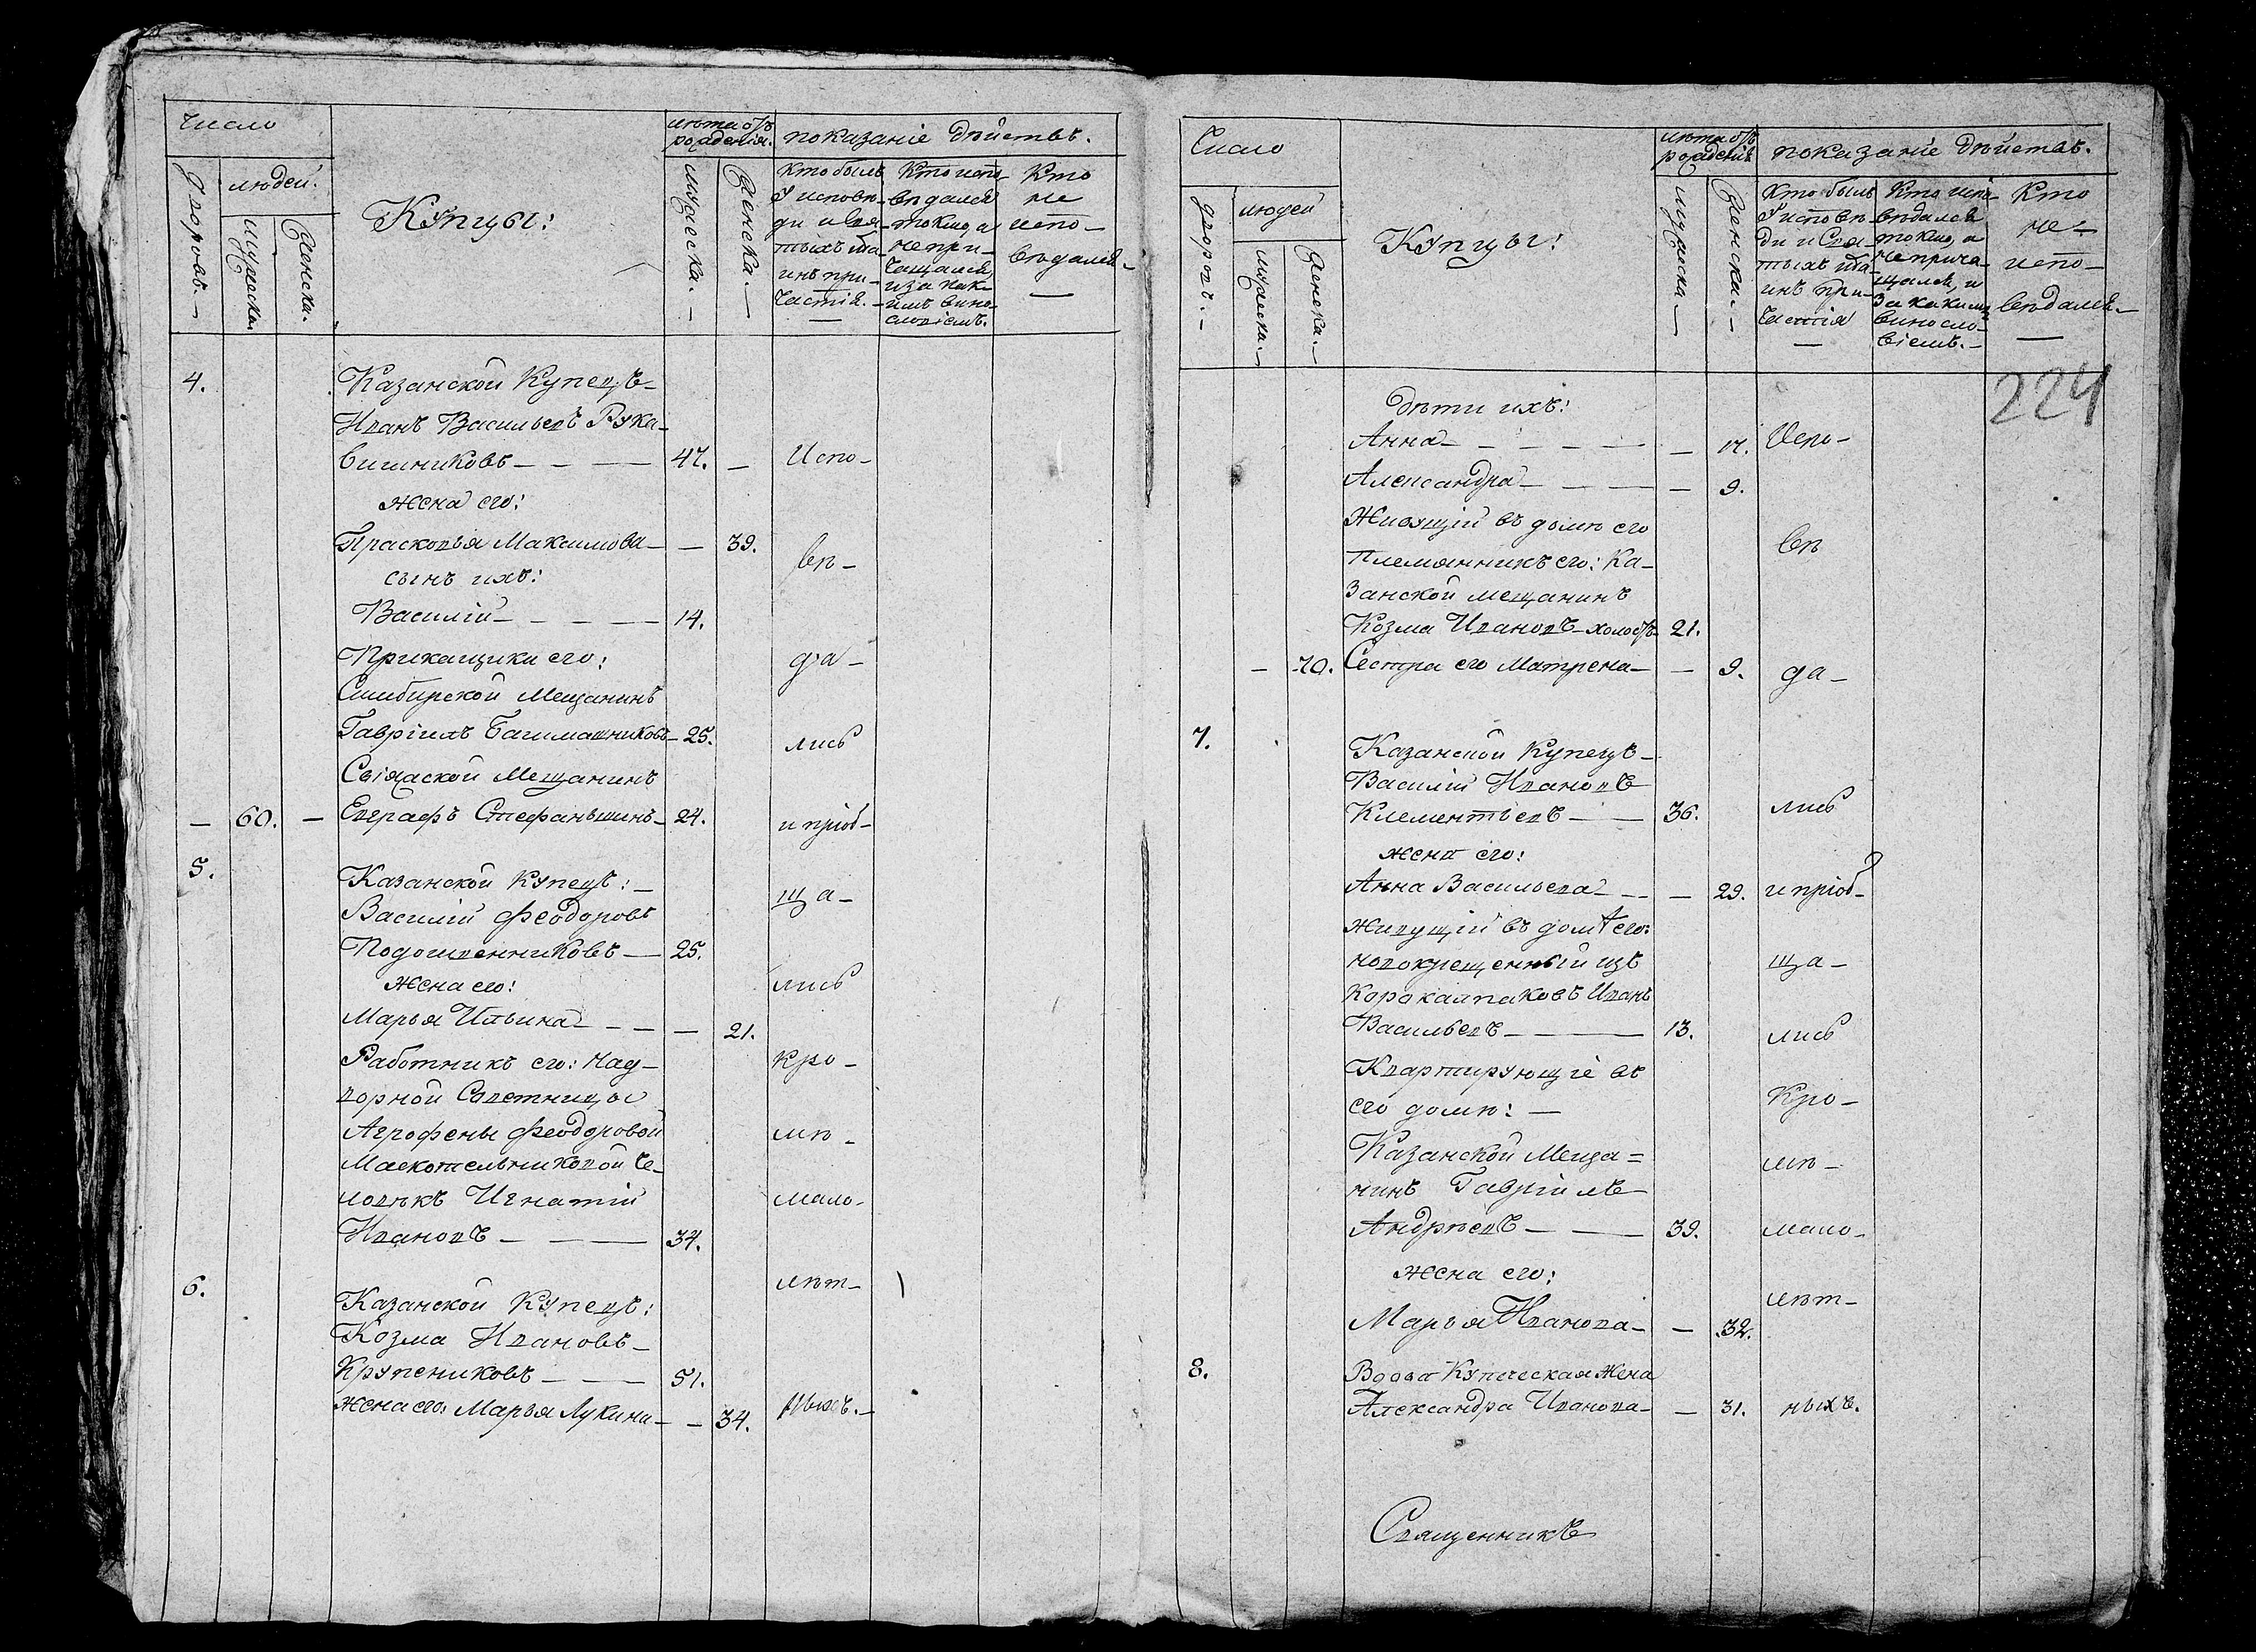 Число
лѣта отъ
рожденія.
показаніе дѣйствъ.
дворовъ.
людей.
мужеска.
женска.
Купцы:
мужеска.
женска.
Кто былъ
у исповѣ-
ди и Свя-
тыхъ та-
инъ при-
частія.
Кто испо-
вѣдался
токмо, а
не при-
чащался,
и за как-
имъ вино-
словіемъ.
Кто
не
испо-
вѣдался
4.
Казанской Купецъ
Иванъ Васильевъ Рука-
вишниковъ 47. Испо-
жена его:
Прасковья Максимова 39. вѣ-
сынъ ихъ:
Василій 14.
Прикащики его: да-
Симбирской Мещанинъ
Гавріилъ Башмашниковъ 25. лись
Свіяжской Мещанинъ
60. Евграфъ Стефаньшинъ 24. и пріоб-
5.
Казанской Купецъ: ща-
Василій Феодоровъ
Подошвенниковъ 25.
жена его: лись
Марья Ильина 21.
Работникъ его: Над- кро-
ворной Совѣтницы
Агрофены Феодоровой мѣ-
Маскотельниковой че-
ловѣкъ Игнатій мало-
Ивановъ 34.
6. лѣт-
Казанской Купецъ:
Козма Ивановъ
Крупениковъ 51.
жена его: Марья Лукина 34. ныхъ.
Число
лѣта отъ
рожденія
показаніе дѣйствъ.
дворовъ.
людей
мужеска.
женска.
Купцы:
мужеска
женска.
Кто былъ
у исповѣ-
ди и Свя-
тыхъ та-
инъ при-
частія
Кто испо-
вѣдался
токмо, а
не прича-
щался, и
за какимъ
виносло-
віемъ.
Кто
не-
испо-
вѣдался
224
дѣти ихъ:
Анна 17. Испо-
Александра 9.
Живущій въ домѣ его
племянникъ его: Ка- вѣ
занской мещанинъ
Козма Ивановъ холостъ 21.
70. Сестра его Матрена 9. да-
7.
Казанской Купецъ
Василій Ивановъ
Клементьевъ 36. лись
жена его:
Анна Васильева 29. и пріоб-
живущій въ домѣ его:
новокрещенный изъ ща-
Корокалпаковъ Иванъ
Васильевъ 13. лись
Квартирующіе въ
его домѣ: Кро-
Казанской Меща-
нинъ Гавріилъ мѣ-
Андрѣевъ 39. мало-
жена его:
лѣт-
Марья Иванова 32.
8. Вдова Купеческая жена
Александра Иванова 31. ныхъ.
Священникъ